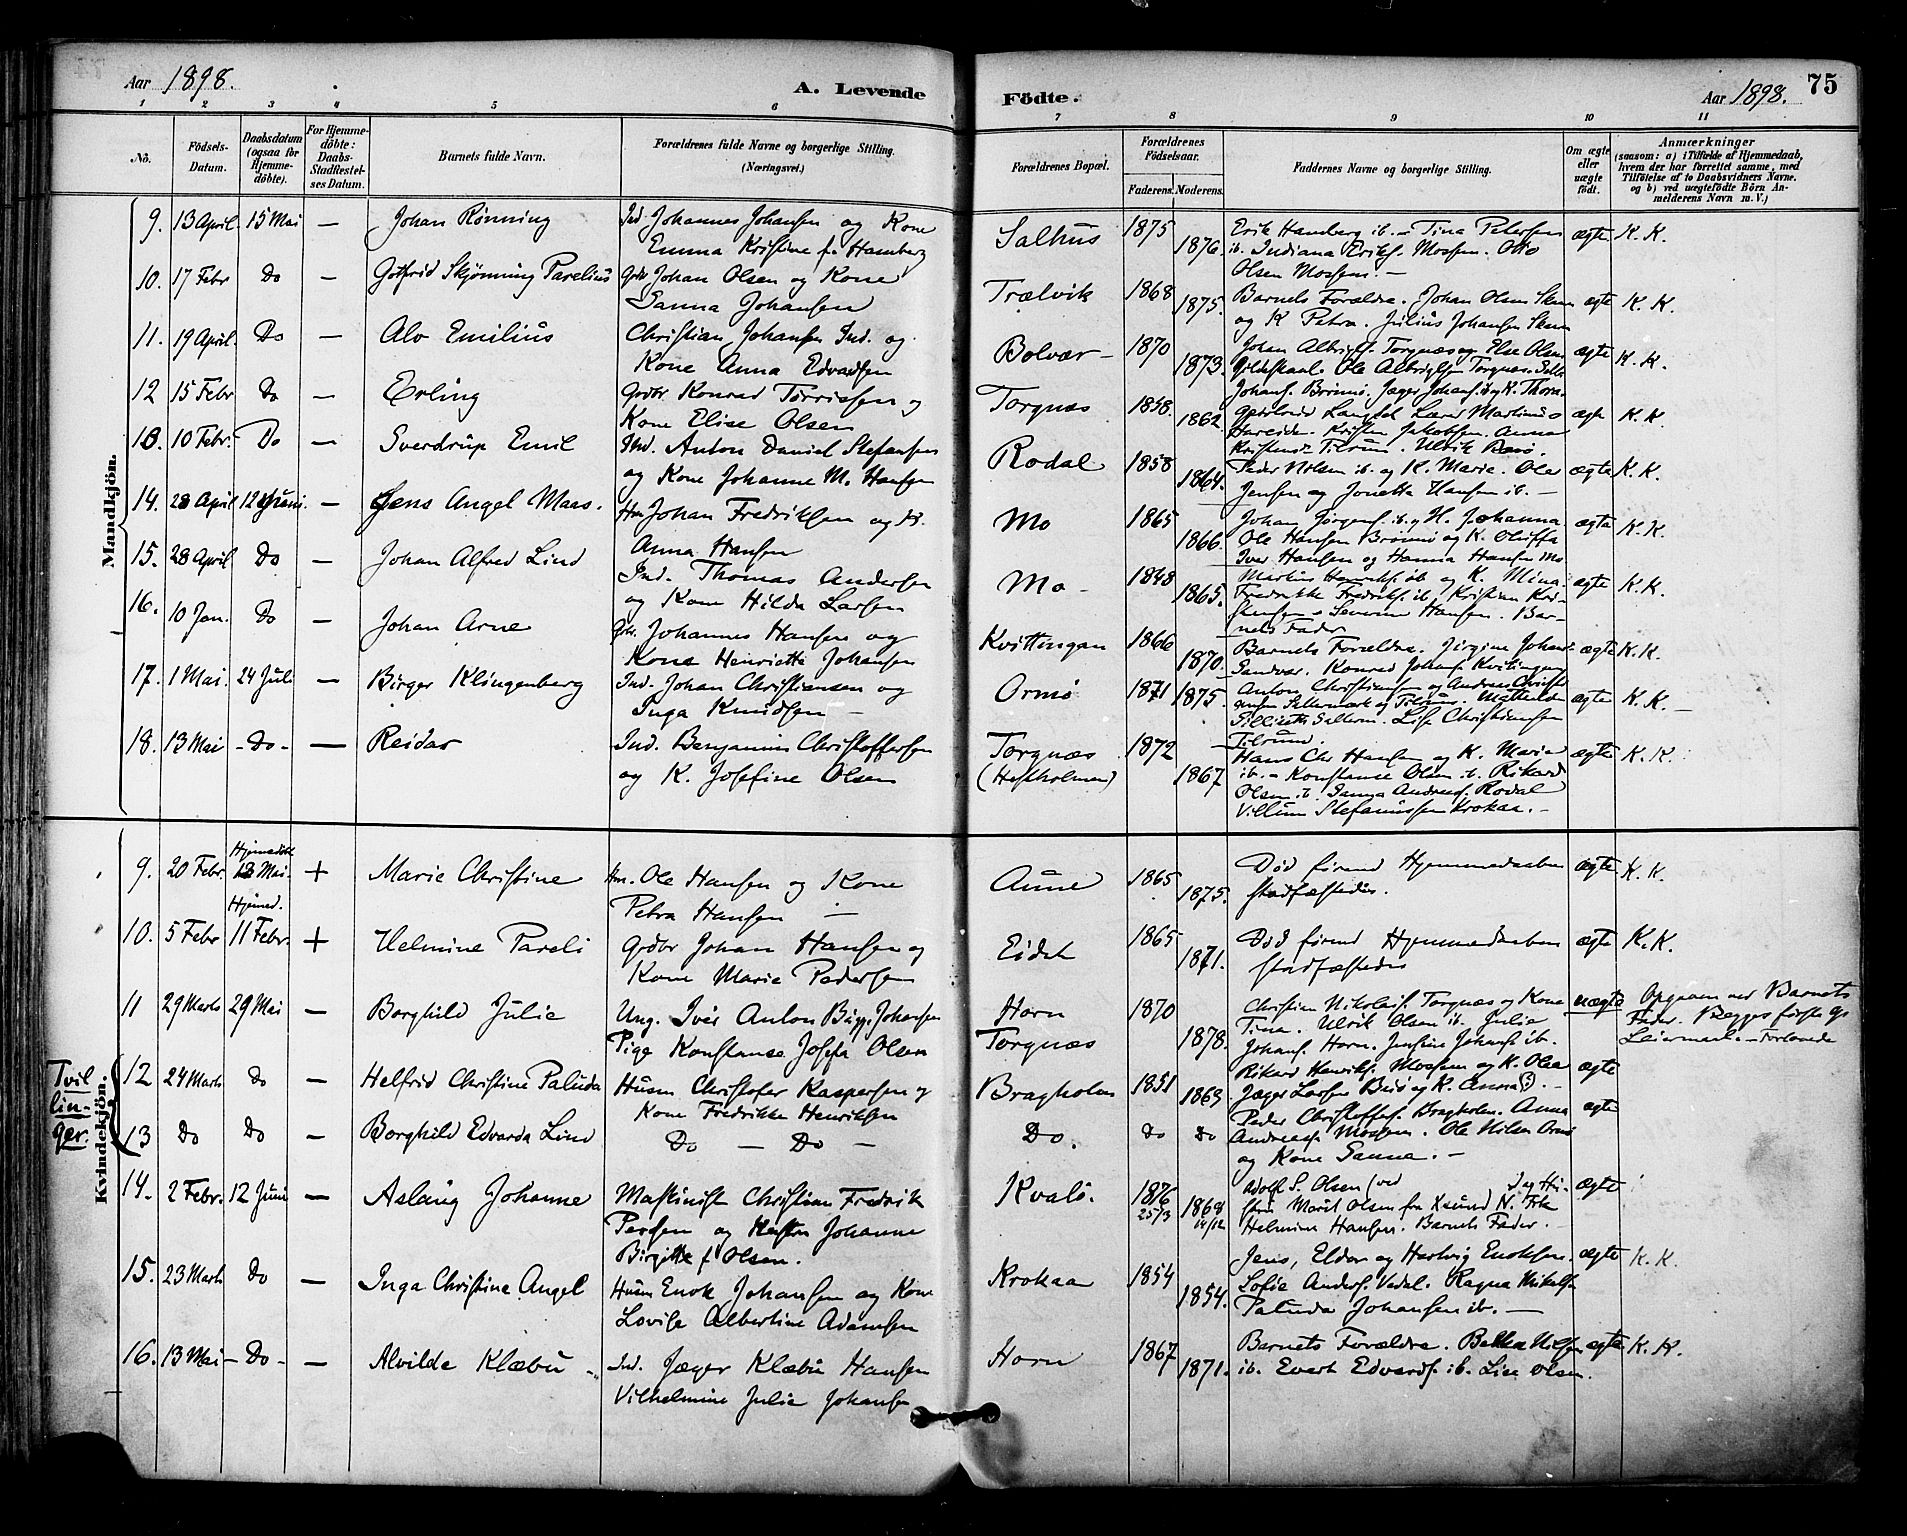 Aar 1898.
A. Levende
Födte.
Aar 1898.
75
1 2 3 4 5 6 7 8 9 10 11
No.
Födsels-Datum.
Daabsdatum (ogsaa for Hjemme-döbte).
For Hjemme-döbte: Daabs-Stadfæstel-ses Datum.
Barnets fulde Navn.
Forældrenes fulde Navne og borgerlige Stilling. (Næringsvei.)
Forældrenes Bopæl.
Forældrenes Födselsaar.
Faderens. Moderens.
Faddernes Navne og borgerlige Stilling.
Om ægte eller uægte födt.
Anmærkninger
(saasom: a) i Tilfælde af Hjemmedaab, hvem der har forrettet samme, med Tilföielse af to Daabsvidners Navne. og b) ved uegtefödte Börn An-melderens Navn m. V.)
Mandkjön.
9. 13 April. 15 Mai — Johan Rönning Ind. Johannes Johansen og Kone Salhus 1875 Erik Hamberg ib. - Tina Petersen ægte K. K.
Emma Kristine f. Hamberg 1876. ib. Indiana Eriks. Mossem. Otto
Olsen Mossem. —
10. 17 Febr Do — Gotfrid Skjönning Parelius Grdbr Johan Olsen og Kone Trælvik 1868 Barnets Forældre. Johan Olsen ægte K. K.
Sanna Johansen 1875. og K Petra. Julius Johansen
11. 19 April. Do — Alv Emilius Christian Johansen Ind. og Bolvær 1870 Johan Torgnæs og Else Olsen ægte K. K.
Kone Anna Edvardsen 1873. Gildeskaal. Ole Torgnæs.
12 15 Febr Do — Erling Grdbr Konrad Torrissen og Torgnæs 1858. Johans. Brönnö. Jæger Johans. ægte K. K.
Kone Elise Olsen 1862. Lærer Martinus
Kristen Jakobsen. Anna
13. 10 Febr. Do — Sverdrup Emil Ind. Anton Daniel Stefansen Rodal 1858 Tilrum. Ulrik ægte K. K.
og Kone Johanne M. Hansen 1864. Peder Nilsen ib. og K. Marie. Ole
Jensen og Jonetta Hansen ib. —
14. 28 April 12 Juni. — Jens Angel Maas. Hm Johan Fredriksen og K. Mo 1865 Johan Jörgens. ib. og H. Johanna ægte K. K.
Anna Hansen 1866. Ole Hansen Brönnö og K. Oliffa
Iver Hansen og Hanna Hansen Mo
15. 28 April Do — Johan Alfred Lind Ind. Thomas Andersen Mo - 1848 Martin Henriks. ib og K. Mina ægte K. K.
og Kone Hilda Larsen 1865. Fredrikke Fredriks. ib. Kristian Kri-
stensen - Severin Hansen. Bar-
nets Fader
16. 10 Jan. Do — Johan Arne Johannes Hansen og Kvittingan 1866 Barnets Forældre. Jirgine Johans ægte K. K.
Kone Henriette Johansen 1870. Sandvær. Konrad Johans.
17. 1 Mai. 24 Juli — Birger Klingenberg Ind. Johan Christiansen og Ormö 1871 1875. Anton Christians. og Andreas ægte K. K. —
Inga Knudsen — Tilrum. Mathilde
Lise Christiansen
Tilrum.
18. 13 Mai - Do - — Reidar Ind. Benjamin Christoffersen Torgnæs 1872 Hans Chr Hansen og K. Marie ægte K. K.
og K. Josefine Olsen (Hestholmen) 1867 ib. - Konstanse Olsen ib. Rikard
Olsen ib. Sanna Andreas. Rodal
Villum Stefanussen Krokaa. —
Kvindekjön.
9. 20 Febr. Hjemedöbt 18 Mai. + Marie Christine Hm. Ole Hansen og Kone Aune 1865 Död förend Hjemmedaaben ægte K. K.
Petra Hansen — 1875. stadfæstedes.
10. 5 Febr Hjemed. 11 Febr. + Helmine Pareli Grdbr Johan Hansen og Eidet 1865 Död förend Hjemmedaaben ægte K. K.
Kone Marie Pedersen 1871. stadfæstedes
11 29 Marts 29 Mai — Borghild Julie Ung. Iver Anton Bugg. Johansen Horn 1870 Christian Nikolais. Torgnæs og Kone uægte Opgiven ved Barnets
Pige Konstanse Josefa Olsen Torgnæs 1878. Tina. Ulrik Olsen ib. Julia Fader. Begges förste Gs
Johans. Horn. Jensine Johans. ib. Leiermaal. — Forlovede
Tvil
lin-
ger.
12 24 Marts Do — Helfrid Christine Palinda Husm Christofer Kaspersen og Bragholm 1851 Rikard Henriks. Mossem og K. Olea ægte
Kone Fredrikke Henriksen 1863 Jæger Larsen og K. Anna. —
13 Do Do — Borghild Edvarda Lind Do — Do — Do. Do Do Peder Christoffers. Bragholm. Anna ægte
Andreas. Mossem. Ole Nilsen Ormö
og Kone Sanna. —
14. 2 Febr. 12 Juni — Aslaug Johanne Maskinist Christian Fredrik Kvalö. 1876 25/3 Adolf S. Olsen (ved ægte
Persen og Hustru Johanne 1868 14/12 stru Marit Olsen fra Xsund N. Frk
Birgitte f. Olsen. Helmine Hansen. Barnets Fader. —
15. 23 Marts Do — Inga Christine Angel Husm Enok Johansen og Kone Krokaa 1854 Jens, Eldor og Hartvig Enoksen. ægte K. K.
Lovise Albertine Adamsen 1854. Lofie Anders. Vedal. Ragna Mikels.
Palinda Johansen ib. —
16. 13 Mai - Do - — Alvilde Klæbu Ind. Jæger Klæbu Hansen Horn 1867 Barnets Forældre. Betta Nilsen ægte K. K.
Vilhelmine Julie Johansen 1871. ib. Evert Edvards. ib. Lise Olsen.